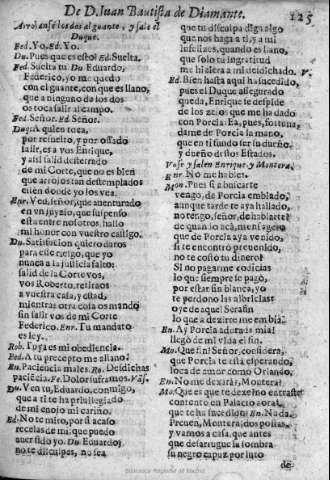 De D. Juan Bautista de Diamante.
125
Arrojanse los dos al guante, y sale el
Duque.
Fed. Yo. Ed. Yo.
Du. Pues que es esto? Ed. Suelta.
Fed. Suelta tu. Du. Eduardo,
Federico, yo me quedo
con el guante, con que es llano,
que a ninguno de los dos
os toca salir al campo.
Fed. Señor. Ed. Señor.
Duq. A quien toca,
por resuelto, y por osado
salir, es a vos Enrique,
y assi salid desterrado
de mi Corte, que no es bien
que arrojos tan destemplados
esten donde yo los vea.
Enr. Ved, señor, que aventurado
en vn juyzio, que suspenso
esta entre nosotros, hallo
mi honor con vuestro castigo.
Du. Satisfacion quiero daros
para esse riesgo, que yo
nunca a la justicia falto:
salid de la Corte vos,
vos Roberto, retiraos
a vuestra casa, y estad,
mientras otra cosa os mando
sin salir vos de mi Corte
Federico. Enr. Tu mandato
es ley.
Rob. Tuya es mi obediencia.
Fed. A tu precepto me allano:
En. Paciencia males. Ro. Desdichas
paciẽcia. Fe. Dolor suframos. Vãs.
Du. Ven tu, Eduardo, conmigo,
que a ti te ha priuilegiado
de mi enojo mi cariño.
Ed. No te miro, por si acaso
recelas de mi, que puedo
auer sido yo. Du. Eduardo,
no te disculpes, no sea
que tu disculpa diga algo
que nos haga a ti, y a mi
infelizes, quando es llano,
que solo tu ingratitud
me hiziera a mi desdichado. V.
Ed. Bien hasta aqui ha sucedido,
pues el Duque assegurado
queda, Enrique se despide
de los zelos que me ha dado
con Porcia: Ea, pues, fortuna,
dame de Porcia la mano,
que en ti fundo ser su dueño,
y dueño destos Estados.
Vase y salen Enrique, y Montera.
Enr. No me hables.
Mon. Pues si a buscarte
vengo, de Porcia embiado,
aunque tarde te aya hallado,
no tengo, señor, de hablarte?
de quan lo acà, mensagero
que de Porcia aya venido,
si te encontrò preuenido,
no te costò tu dinero?
Si no pagarme codicias
lo que siempre se pagò,
por estar sin blanca, yo
te perdono las albricias:
oye de aquel Serafin
lo que a dezirte me embia.
En. Ay Porcia adorada mia!
llegò de mi vida el fin.
Mo. Que fin? Señor, considera,
que Porcia te està esperando,
loca de amor como Orlando.
En. No me dexaràs, Montera?
Mo. Que es que te dexe? no entraste
contento en Palacio aora,
que te ha sucedido? En. Nada.
Preuen, Montera, dos postas,
y vamos a casa, que antes
de desarrugue la sombra
su negro capuz por luto
de
Biblioteca Regional de Madrid